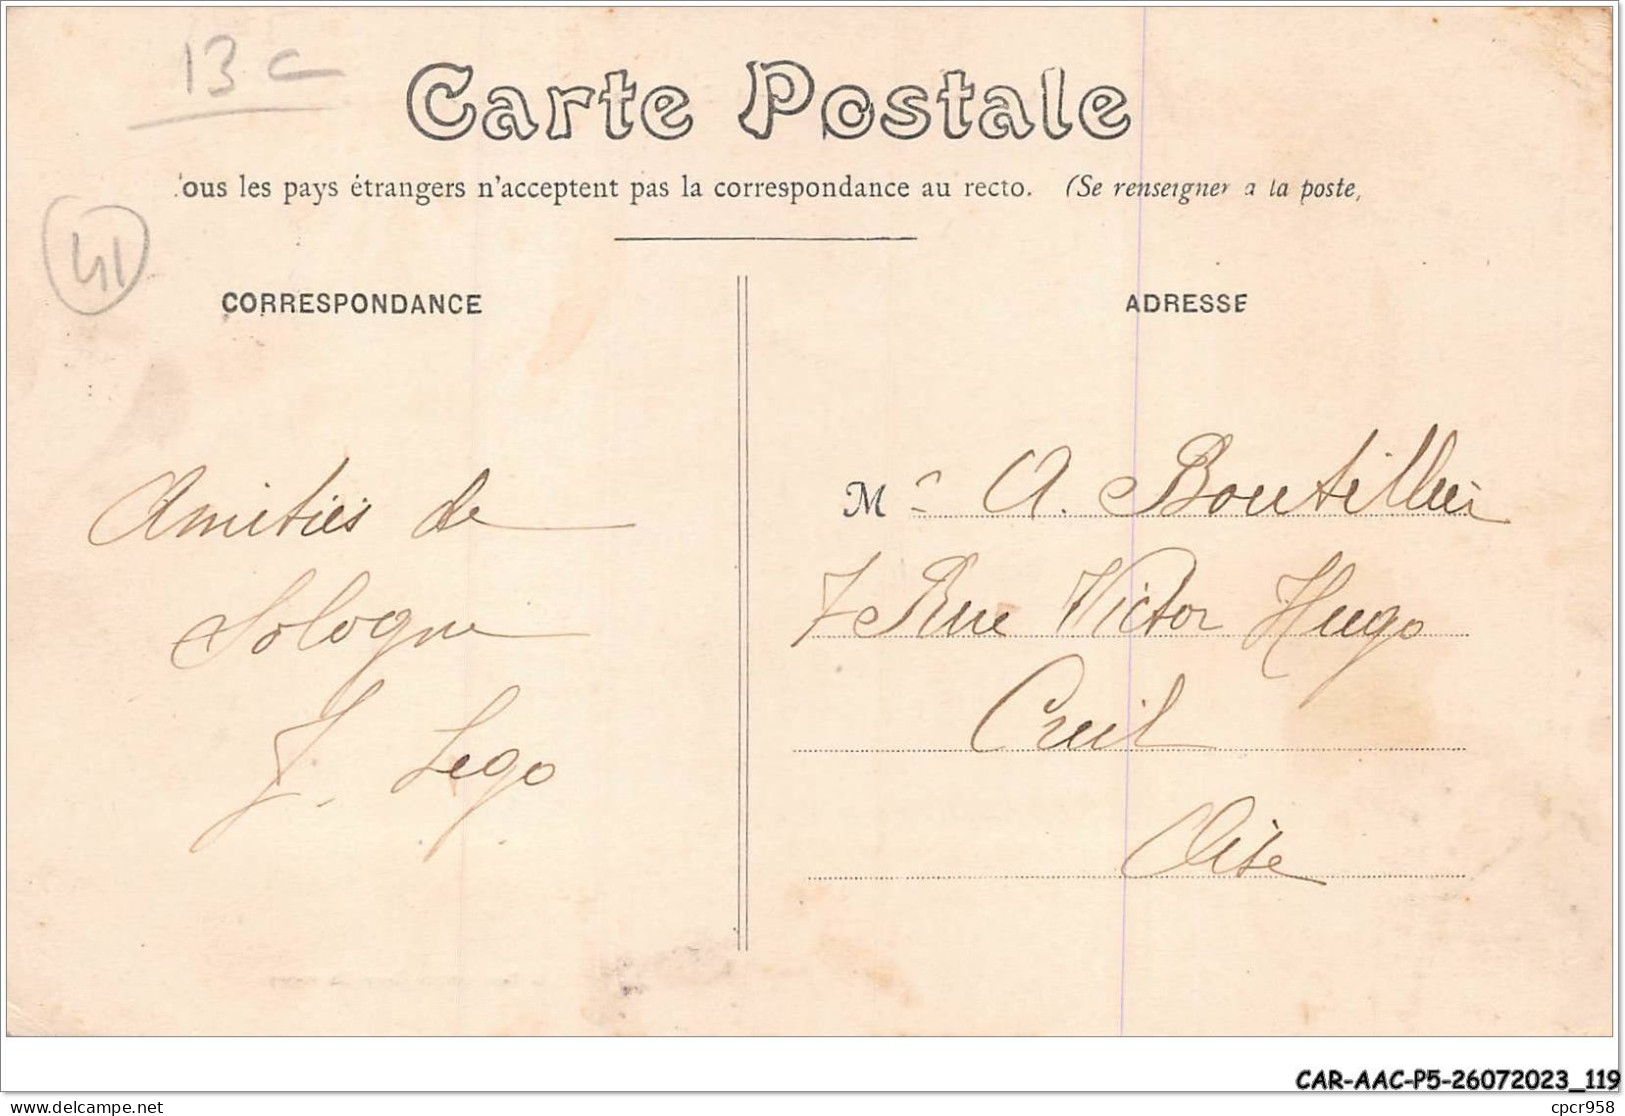 13 c
Carte Postale
ous les pays étrangers n'acceptent pas la correspondance au recto. (Se renseigner a la poste,
41
CORRESPONDANCE
ADRESSE
Amitiés de
Sologne
J. Lego
M A. Boutillier
7 Rue Victor Hugo
Creil
Oise
CAR-AAC-P5-26072023_119
delcampe.net
cpcr958